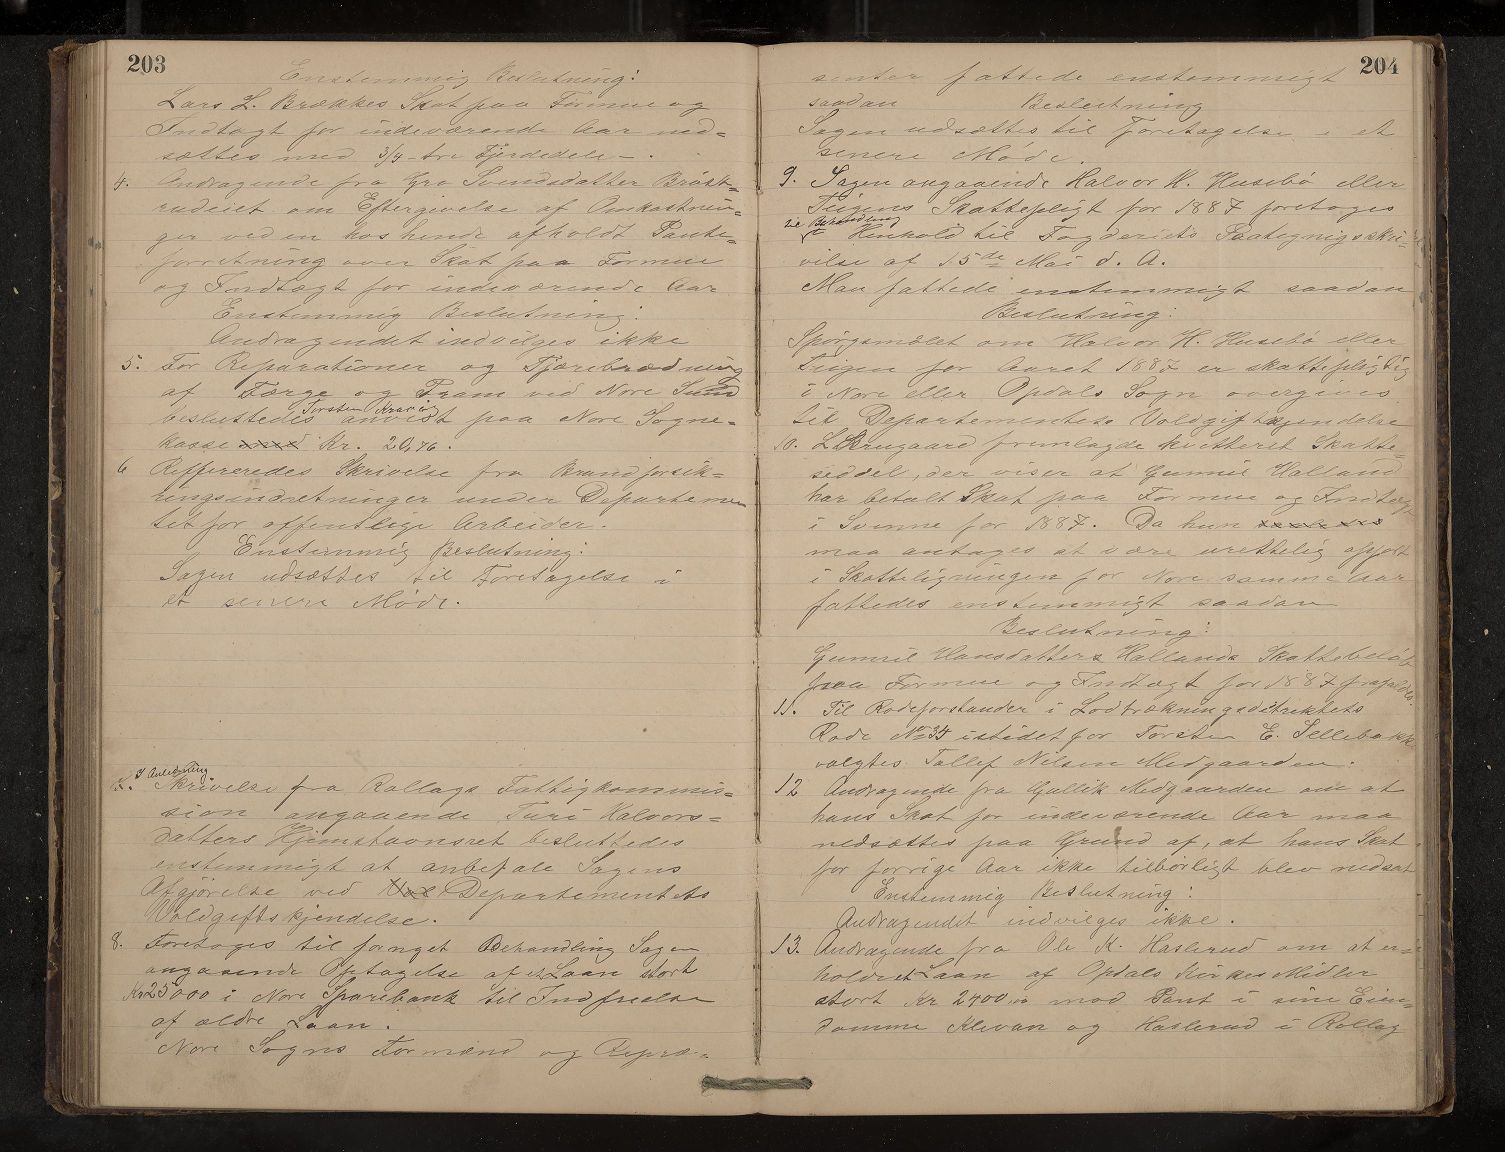 203
Enstemmig Beslutning:
Lars L. Brækkes Skat paa Formue og
Indtægt for indeværende Aar ned-
sættes med 3/4 - tre Fjerdedele - .
4. Andragende fra Gro Svendsdatter Brøst-
rudeiet om Eftergivelse af Omkostnin-
ger ved en hos hende afholdt Pante-
forretning over Skat paa Formue
og Indtægt for indeværende Aar
Enstemmig Beslutning:
Andragendet indvilges ikke
5. For Reparationer og Tjærebrædning
af Færge og Pram ved Nore Sund
besluttedes Torsten anvist paa Nore Sogne-
kasse Kr. 20,46.
6 Reffereredes Skrivelse fra Brandforsik-
ringsindretninger under Departemen
tet for offentlige Arbeider.
Enstemmig Beslutning:
Sagen udsættes til Foretagelse i
et senere Møde.
I Anledning
Skrivelse fra Rollags Fattigkommis-
sion angaaende Turi Halvors-
datters Hjemstavnsret besluttedes
enstemmigt at anbefale Sagens
Afgjørelse ved Departementets
Voldgiftskjendelse.
8. Foretages til fornyet Behandling Sagen
angaaende Optagelse af et Laan stort
Kr 25000 i Nore Sparebank til Indfrielse
af ældre Laan.
Nore Sogns Formænd og Repræ-
204
senter fattede enstemmigt
saadan Beslutning
Sagen udsættes til Foretagelse i et
senere Møde.
9. Sagen angaaende Halvor H. Husebø eller
Tiigens Skattepligt for 1887 foretages
2e Behandling
Henhold til Fogderiets Paategnigsskri-
velse af 15de Mai d. A.
Man fattede enstemmigt saadan
Beslutning:
Spørgsmælet om Halvor H. Husebø eller
Tiigen for Aaret 1887 er skattepligtig
i Nore eller Opdals Sogn overgives
til Departementets Voldgiftskjendelse
10. Skrugaard fremlagde kvitteret Skatte-
seddel, der viser at Gunnil Halland
har betalt Skat paa Formue og Indtægt
i Svenne for 1887. Da hun
maa antages at være urettelig opført
i Skatteligningen for Nore samme Aar
fattedes enstemmigt saadan
Beslutning:
Gunnil Hansdatters Hallands Skattebeløb
paa Formue og Indtægt for 1887 frafaldes.
11. Til Rodeforstander i Lodtrækningsdistriktets
Rode No 34 istedet for Torsten E. Sellebakk
valgtes Tollef Nilsen Medgaarden.
12 Andragende fra Gullik Medgaarden om at
hans Skat for indeværende Aar maa
nedsættes paa Grund af, at hans Skat
for forrige Aar ikke tilbørligt blev nedsat
Enstemmig Beslutning:
Andragendet indvilges ikke.
13. Andragende fra Ole K. Haslerud om at er-
holdret Laan af Opdals Kirkes Midler
stort Kr 2400,00 mod Pant i sine Eien-
domme Klevan og Haslerud i Rollag